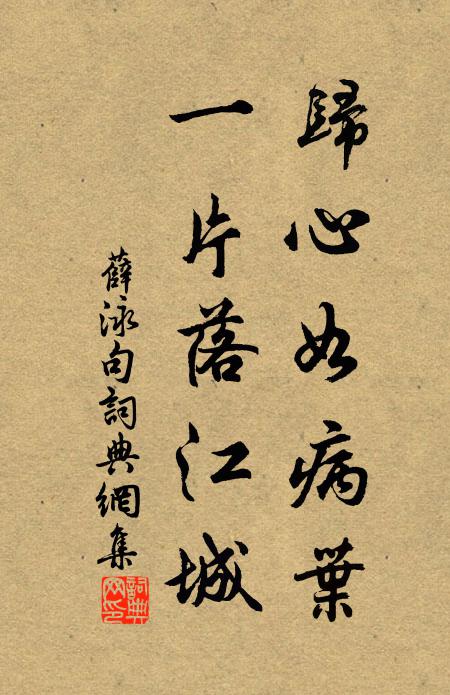 歸心如病葉
一片落江城
薛泳句詞典網集
詞典網印